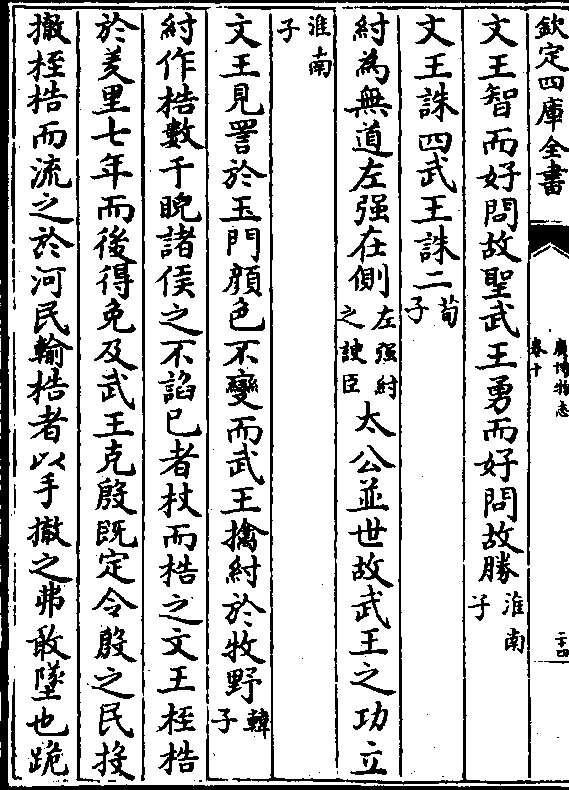 欽定四庫全書
廣博物志
卷十
二十四
文王智而好問故聖武王勇而好問故勝淮南子
文王誅四武王誅二荀子
紂為無道左强在側左强紂之諛臣太公並世故武王之功立
淮南子
文王見詈於玉門顔色不變而武王擒紂於牧野韓子
紂作梏數千睨諸侯之不諂已者杖而梏之文王桎梏
於羑里七年而後得免及武王克殷既定令殷之民投
撤桎梏而流之於河民輸梏者以手撤之弗敢墜也跪